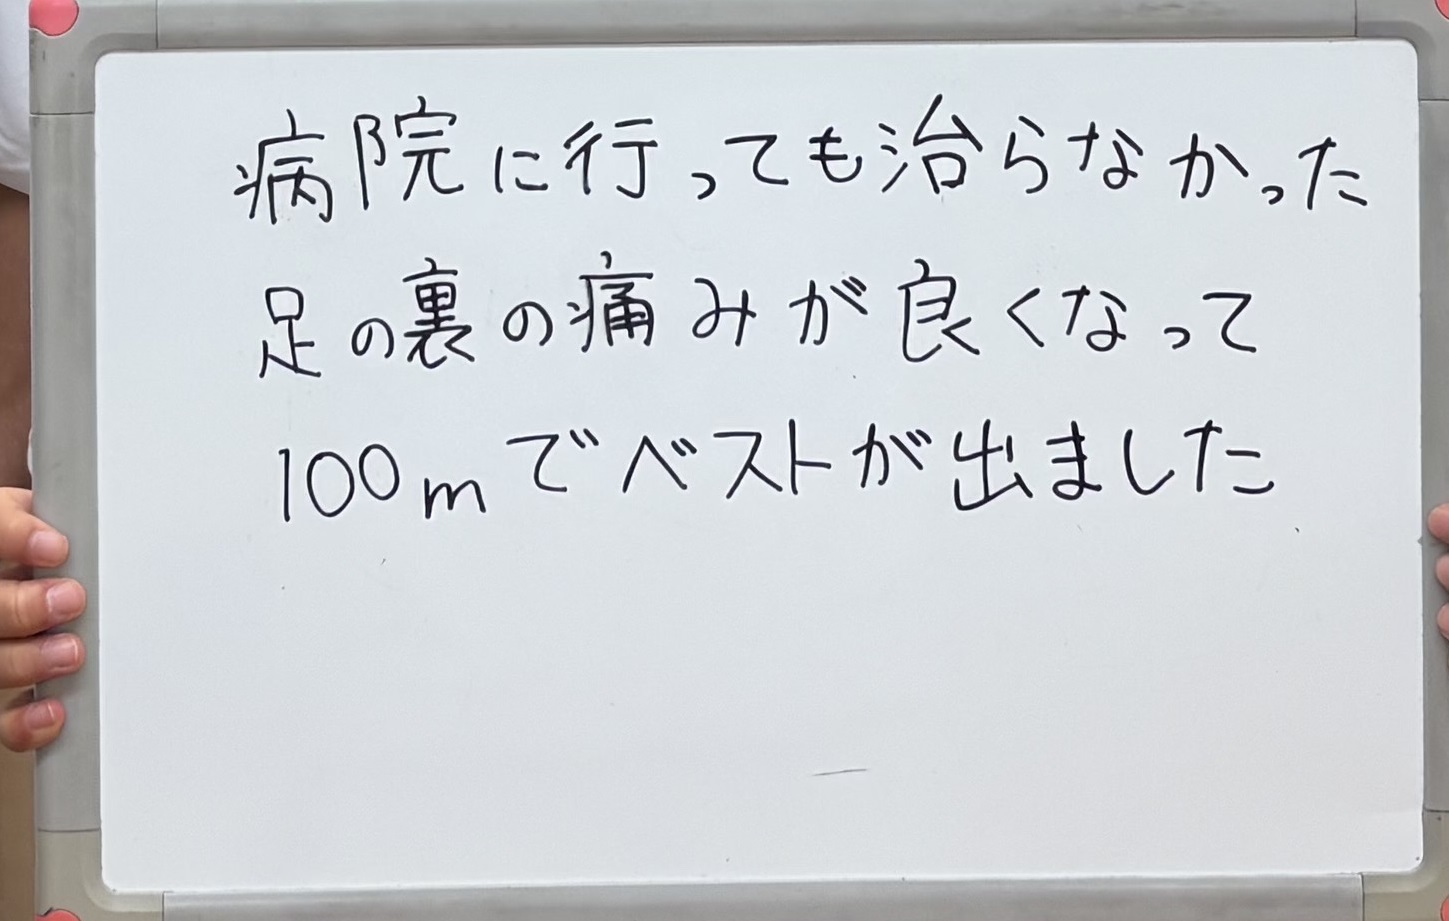 病院に行っても治らなかった
足の裏の痛みが良くなって
100mでベストが出ました